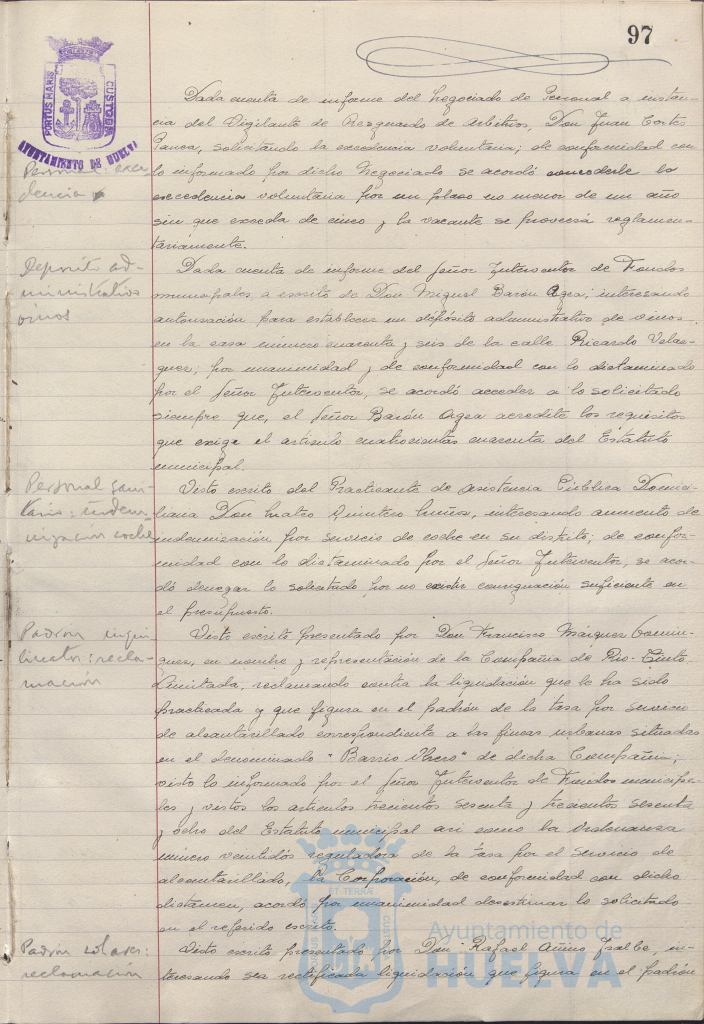 97
PORTUS MARIS CUSTODIA
AYUNTAMIENTO DE HUELVA
Dada cuenta de informe del Negociado de Personal a instan-
cia del Vigilante de Resguardo de Arbitrios, Don Juan Cortes
solicitando la excedencia voluntaria; de conformidad con
Personal: exce-
lo informado por dicho Negociado se acordó concederle la
dencia
excedencia voluntaria por un plazo no menor de un año
sin que exceda de cinco y la vacante se proveerá reglamen-
tariamente.
Deposito ad-
Dada cuenta de informe del Señor Interventor de Fondos
ministrativo
municipales a escrito de Don Miguel Barón Agea; interesando
vinos
autorización para establecer un depósito administrativo de vinos
en la casa número cuarenta y seis de la calle Ricardo Velaz-
quez; por unanimidad y de conformidad con lo dictaminado
por el Señor Interventor, se acordó acceder a lo solicitado
siempre que, el Señor Barón Agea acredite los requisitos
que exige el artículo cuatrocientos cuarenta del Estatuto
municipal.
Personal sani-
Visto escrito del Practicante de Asistencia Pública Domici-
tario: indem-
liana Don Mateo Quintero interesando aumento de
nización coche
indemnización por servicio de coche en su distrito; de confor-
midad con lo dictaminado por el Señor Interventor, se acor-
dó denegar lo solicitado por no existir consignación suficiente en
el presupuesto.
Padrón inqui-
Visto escrito presentado por Don Francisco Márquez
linatos: recla-
en nombre y representación de la Compañía de Rio-Tinto
mación
Limitada, reclamando contra la liquidación que le ha sido
practicada y que figura en el padrón de la tasa por servicio
de alcantarillado correspondiente a las fincas urbanas situadas
en el denominado "Barrio Obrero" de dicha Compañía;
visto lo informado por el Señor Interventor de Fondos municipa-
les y vistos los artículos trescientos sesenta y trescientos sesenta
y ocho del Estatuto municipal así como la Ordenanza
número veintidós reguladora de la tasa por el servicio de
alcantarillado, la Corporación, de conformidad con dicho
dictamen, acordó por unanimidad desestimar lo solicitado
en el referido escrito.
Padrón solares:
Visto escrito presentado por Don Rafael in-
reclamación
teresando sea rectificada liquidación que figura en el padrón
Ayuntamiento de
HUELVA